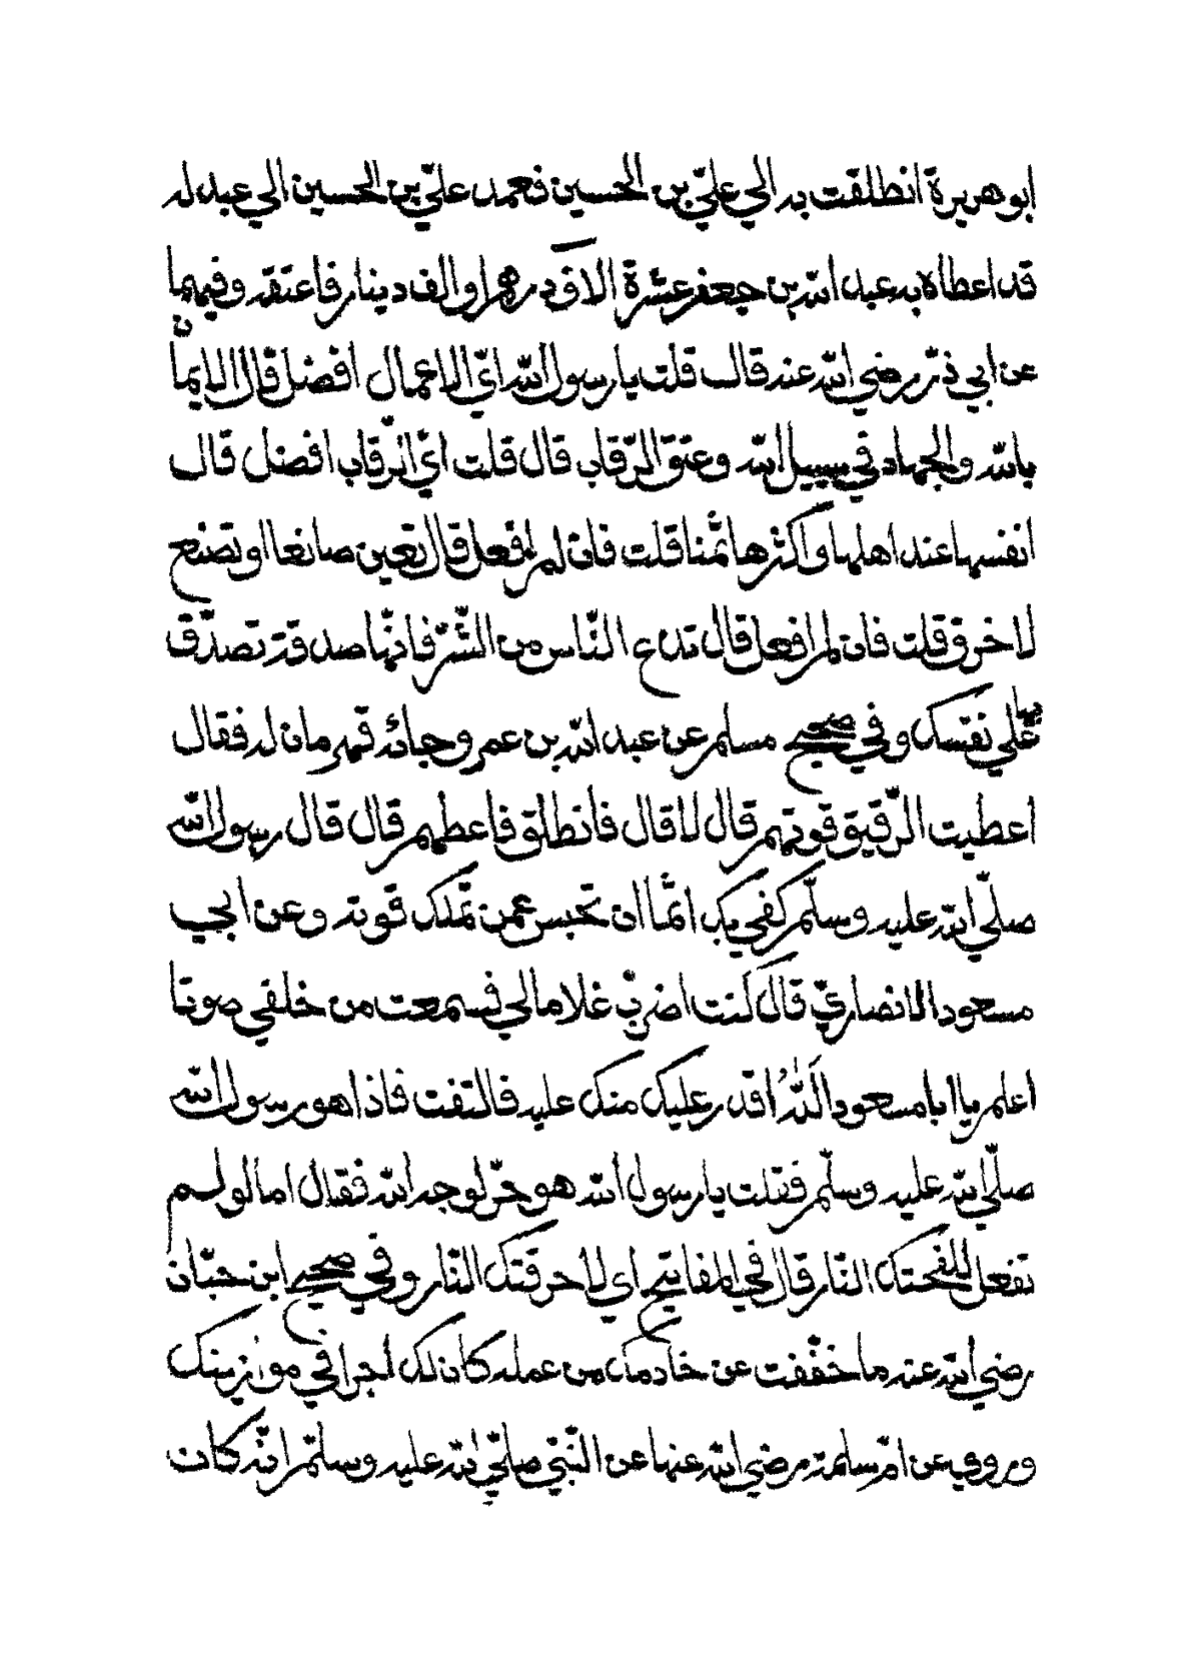 ابو هريرة انطلقت به الي عليّ بن الحسين فعمد عليّ بن الحسين الي عبد له
قد اعطاه به عبد الله بن جعفر عشرة الاف درهم او الف دينار فاعتقه وفيهما
عن ابي ذرّ رضي الله عنه قال قلت يا رسول الله ايّ الاعمال افضل قال الايمان
بالله والجهاد في سبيل الله وعتق الرّقاب قال قلت ايّ الرّقاب افضل قال
انفسها عند اهلها واكثرها ثمنا قلت فان لم افعل قال تعين صانعا او تصنع
لاخرق قلت فان لم افعل قال تدع النّاس من الشّرّ فانّها صدقة تصدّق
بها علي نفسك وفي صحيح مسلم عن عبد الله بن عمرو جائه قهرمان له فقال
اعطيت الرّقيق قوتهم قال لا قال فانطلق فاعطهم قال قال رسول الله
صلّي الله عليه وسلّم كفي بك اثما ان تحبس عمن تملك قوته وعن ابي
مسعود الانصاريّ قال كنت اضرب غلاما لي فسمعت من خلفي صوتا
اعلم يا ابا مسعود اَللّٰهُ اقدر عليك منك عليه فالتفت فاذا هو رسول الله
صلّي الله عليه وسلّم فقلت يا رسول الله هو حرّ لوجه الله فقال اما لو لم
تفعل للفحتك النّار قال في المفاتيح اي لاحرقتك النّار وفي صحيح ابن حبّان
رضي الله عنه ما خفّفت عن خادمك من عمله كان لك اجرا في موازينك
وروي عن امّ سلمة رضي الله عنها عن النّبيّ صلّي الله عليه وسلّم انّه كان